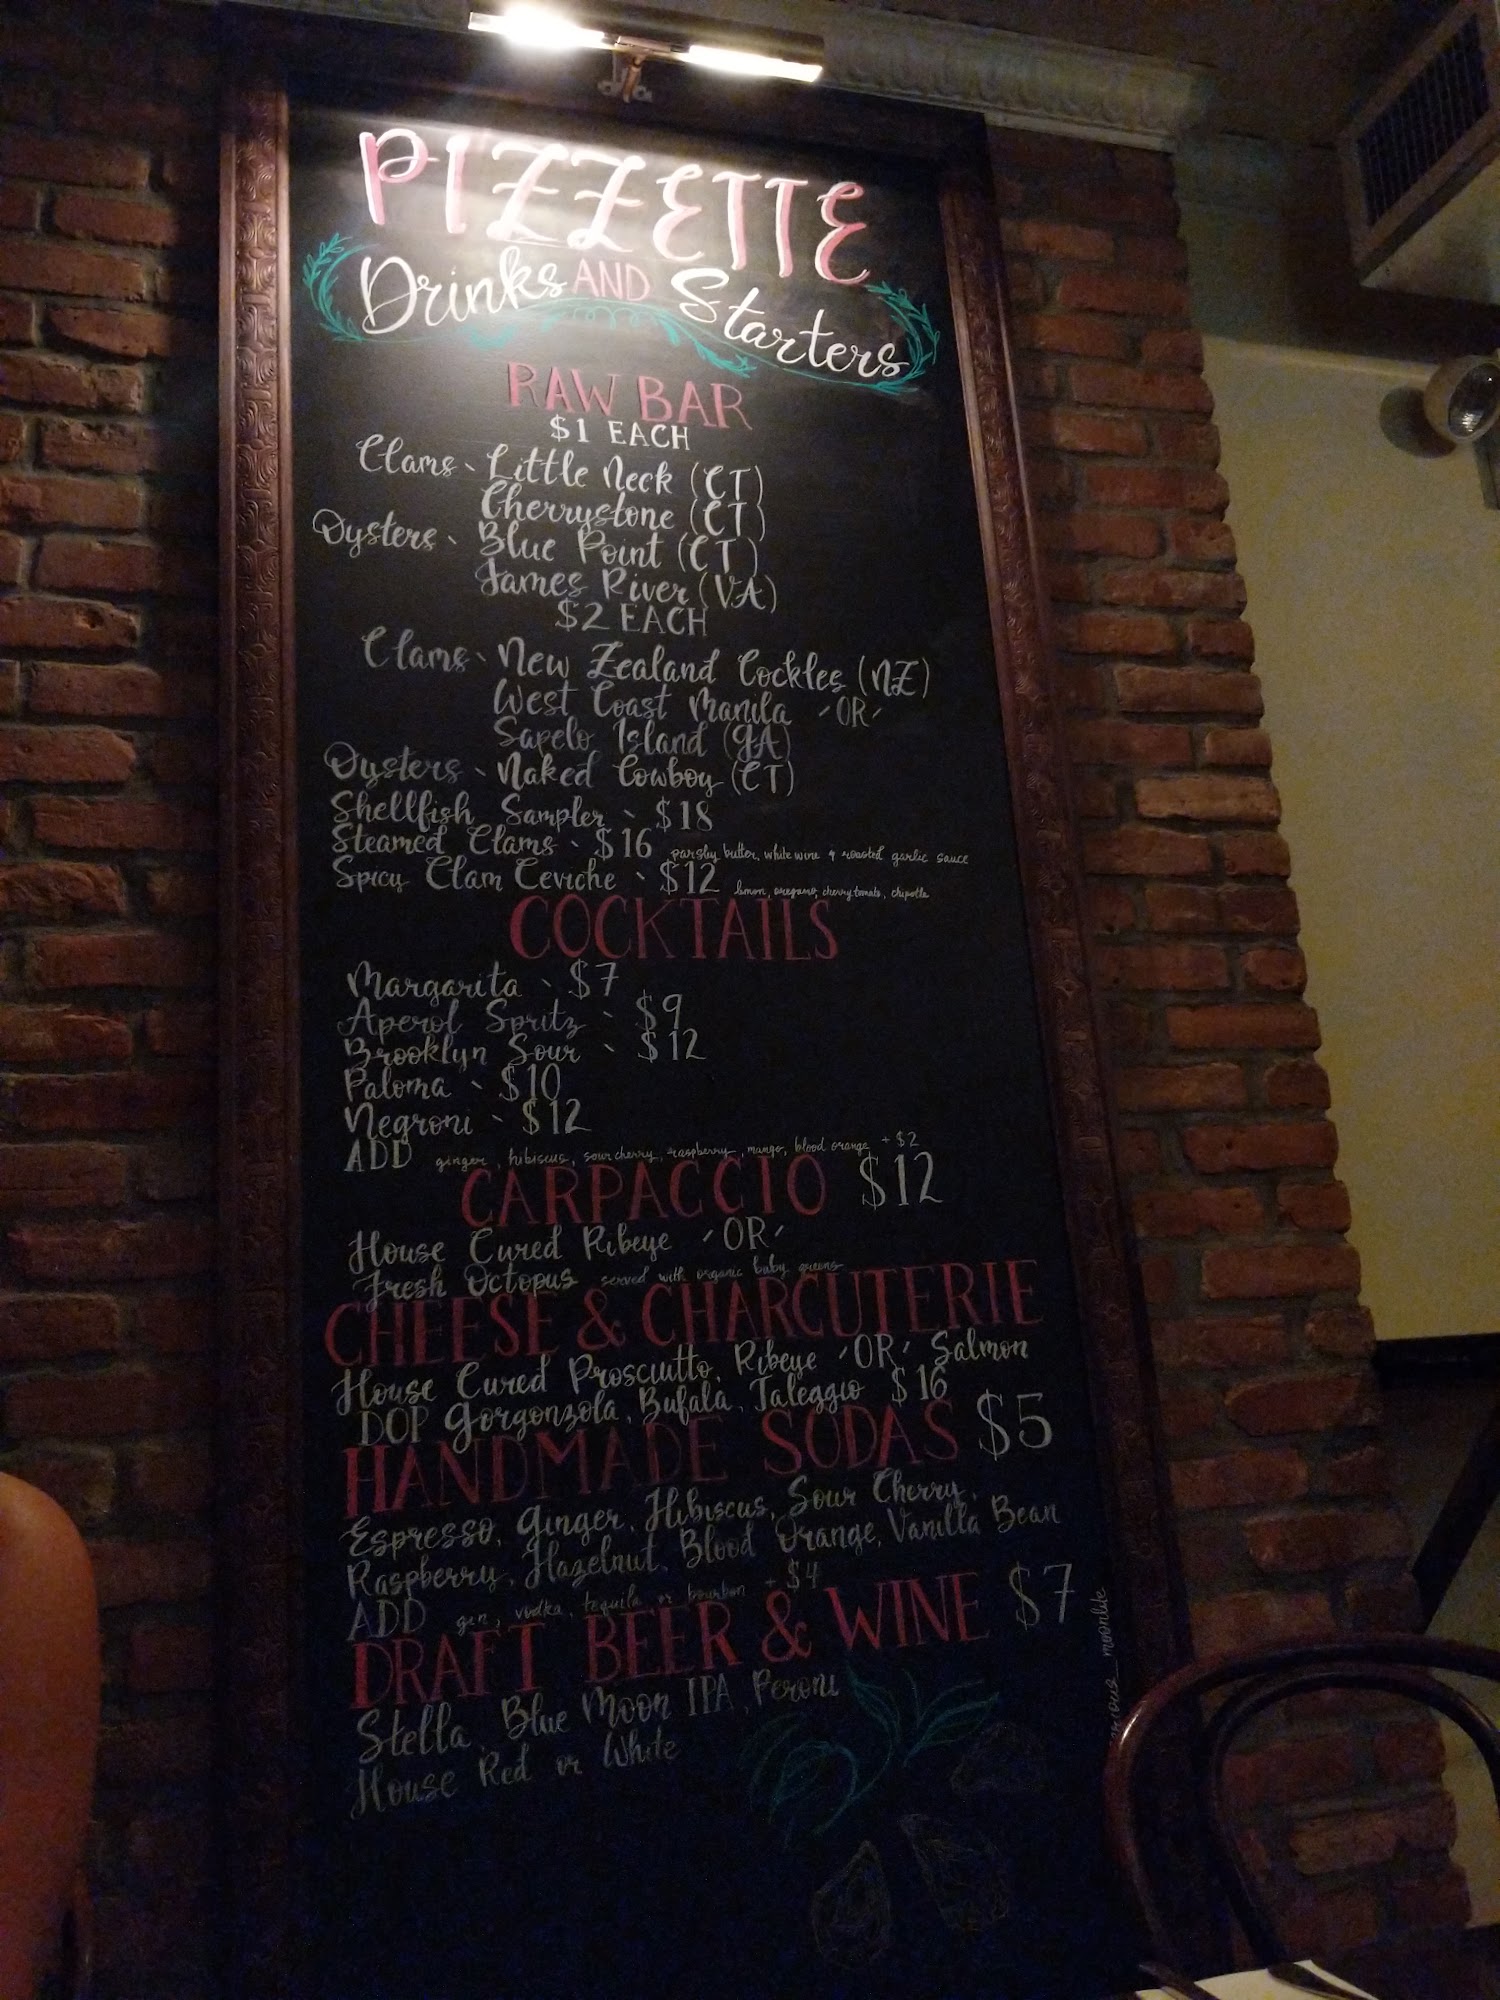 PIZZETTE
Drinks AND Starters
RAW BAR
$1 EACH
Clams - Little Neck (CT)
Cherrystone (CT)
Oysters - Blue Point (CT)
James River (VA)
$2 EACH
Clams - New Zealand Cockles (NZ)
West Coast Manila -OR-
Sapelo Island (GA)
Oysters - Naked Cowboy (CT)
Shellfish Sampler - $18
Steamed Clams - $16 parsley butter, white wine & roasted garlic sauce
Spicy Clam Ceviche - $12 lemon, oregano, cherry tomato, chipotle
COCKTAILS
Margarita - $7
Aperol Spritz - $9
Brooklyn Sour - $12
Paloma - $10
Negroni - $12
ADD ginger, hibiscus, sour cherry, raspberry, mango, blood orange + $2
CARPACCIO $12
House Cured Ribeye -OR-
Fresh Octopus served with organic baby greens
CHEESE & CHARCUTERIE
House Cured Prosciutto, Ribeye -OR- Salmon
DOP Gorgonzola, Bufala, Taleggio $16
HANDMADE SODAS $5
Espresso, Ginger, Hibiscus, Sour Cherry,
Raspberry, Hazelnut, Blood Orange, Vanilla Bean
ADD gin, vodka, tequila or bourbon + $4
DRAFT BEER & WINE $7
Stella, Blue Moon IPA, Peroni
House Red or White